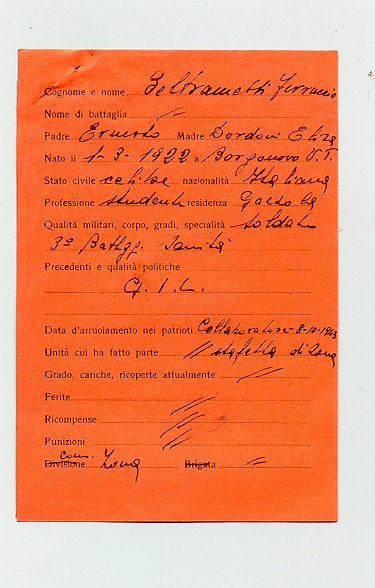 Cognome e nome Beltrametti Ferruccio
Nome di battaglia //
Padre Ernesto Madre Dordoni Eliza
Nato il 1-3-1922 a Borgonovo V.T.
Stato civile celibe nazionalità Italiana
Professione studente residenza
Qualità militari, corpo, gradi, specialità soldato
3° Battgg. Sanità
Precedenti e qualità politiche
G.I.L.
Data d'arruolamento nei patrioti Collaboratore 8-10-1943
Unità cui ha fatto parte // staffetta di zona
Grado, cariche, ricoperte attualmente //
Ferite //
Ricompense //
Punizioni //
com.
Divisione Zona Brigata //